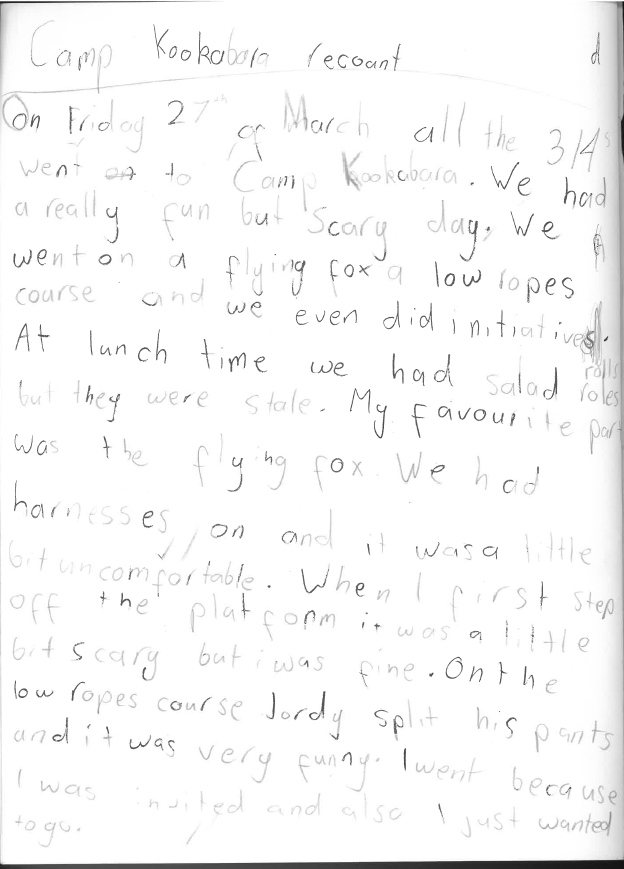 Camp Kookabara recount d
On Friday 27th of March all the 3/4s
went to Camp Kookabara. We had
a really fun but scary day. We
went on a flying fox a low ropes
course and we even did initiatives.
At lunch time we had salad rolls
roles
but they were stale. My favourite part
was the flying fox. We had
harnesses on and it was a little
bit uncomfortable. When I first step
off the platform it was a little
bit scary but i was fine. On the
low ropes course Jordy split his pants
and it was very funny. I went because
I was invited and also I just wanted
to go.